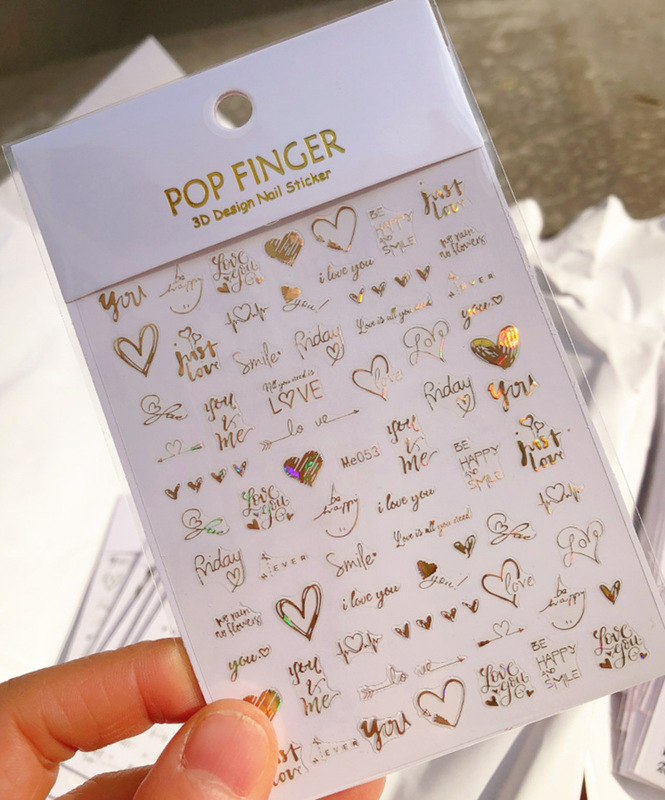 POP FINGER
3D Design Nail Sticker
just
love
BE
HAPPY
&
SMILE
Love
you
be
happy
you
no rain
no flowers
i love you
you!
Love is all you need
you.
just
love
Smile
Friday
Love
All you need is
LOVE
love
Friday
you
you
&
me
lo ve
you
&
me
Me053
BE
HAPPY
&
SMILE
just
love
Love
you
be
happy
i love you
Love is all you need
Friday
Smile
Love
you!
love
no rain
no flowers
i love you
be
happy
you.
you
&
me
lo ve
Love
you
BE
HAPPY
&
SMILE
Love
you
just
love
you